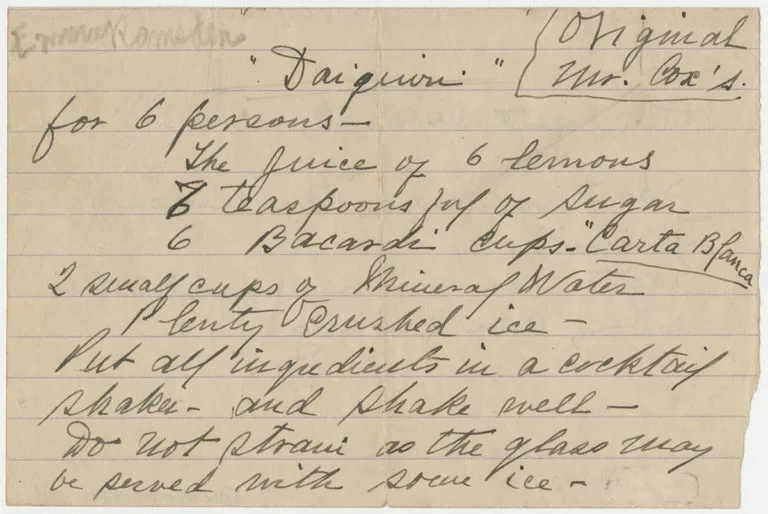 Original
"Daiquiri" Mr. Cox's.
for 6 persons—
The juice of 6 lemons
6 teaspoons ful of sugar
6 Bacardi cups—"Carta Blanca
2 small cups of Mineral Water
Plenty crushed ice—
Put all ingredients in a cocktail
shaker— and shake well—
Do not strain as the glass may
be served with some ice—